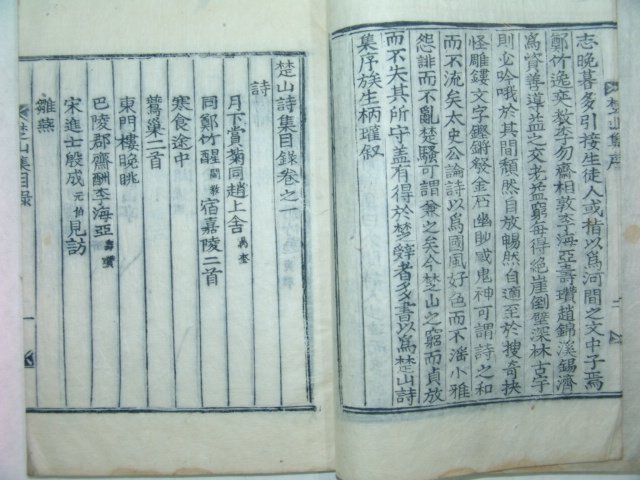 楚山集序
志晩暮多引接生徒人或指以爲河間之文中子焉
鄭竹逸奕敎李勿齋相敦李海亞壽瓚趙錦溪錫濟
爲資善導益之交老益窮每得絶崖倒壁深林古宇
則必吟哦於其間頹然自放暢然自適至於搜奇抉
怪雕鏤文字鏗鏘發金石幽眇感鬼神可謂詩之和
而不流矣太史公論詩以爲國風好色而不淫小雅
怨誹而不亂楚騷可謂兼之矣今楚山之窮而貞放
而不失其所守盖有得於楚辭者多書以爲楚山詩
集序族生柄瓘叙
楚山詩集目錄卷之一
詩
月下賞菊同趙上舍
同鄭竹醒宿嘉陵二首
寒食途中
鷰巢二首
東門樓晩眺
巴陵郡齋酬李海亞壽瓚
宋進士殷成元伯見訪
雛燕
楚山集目錄
一